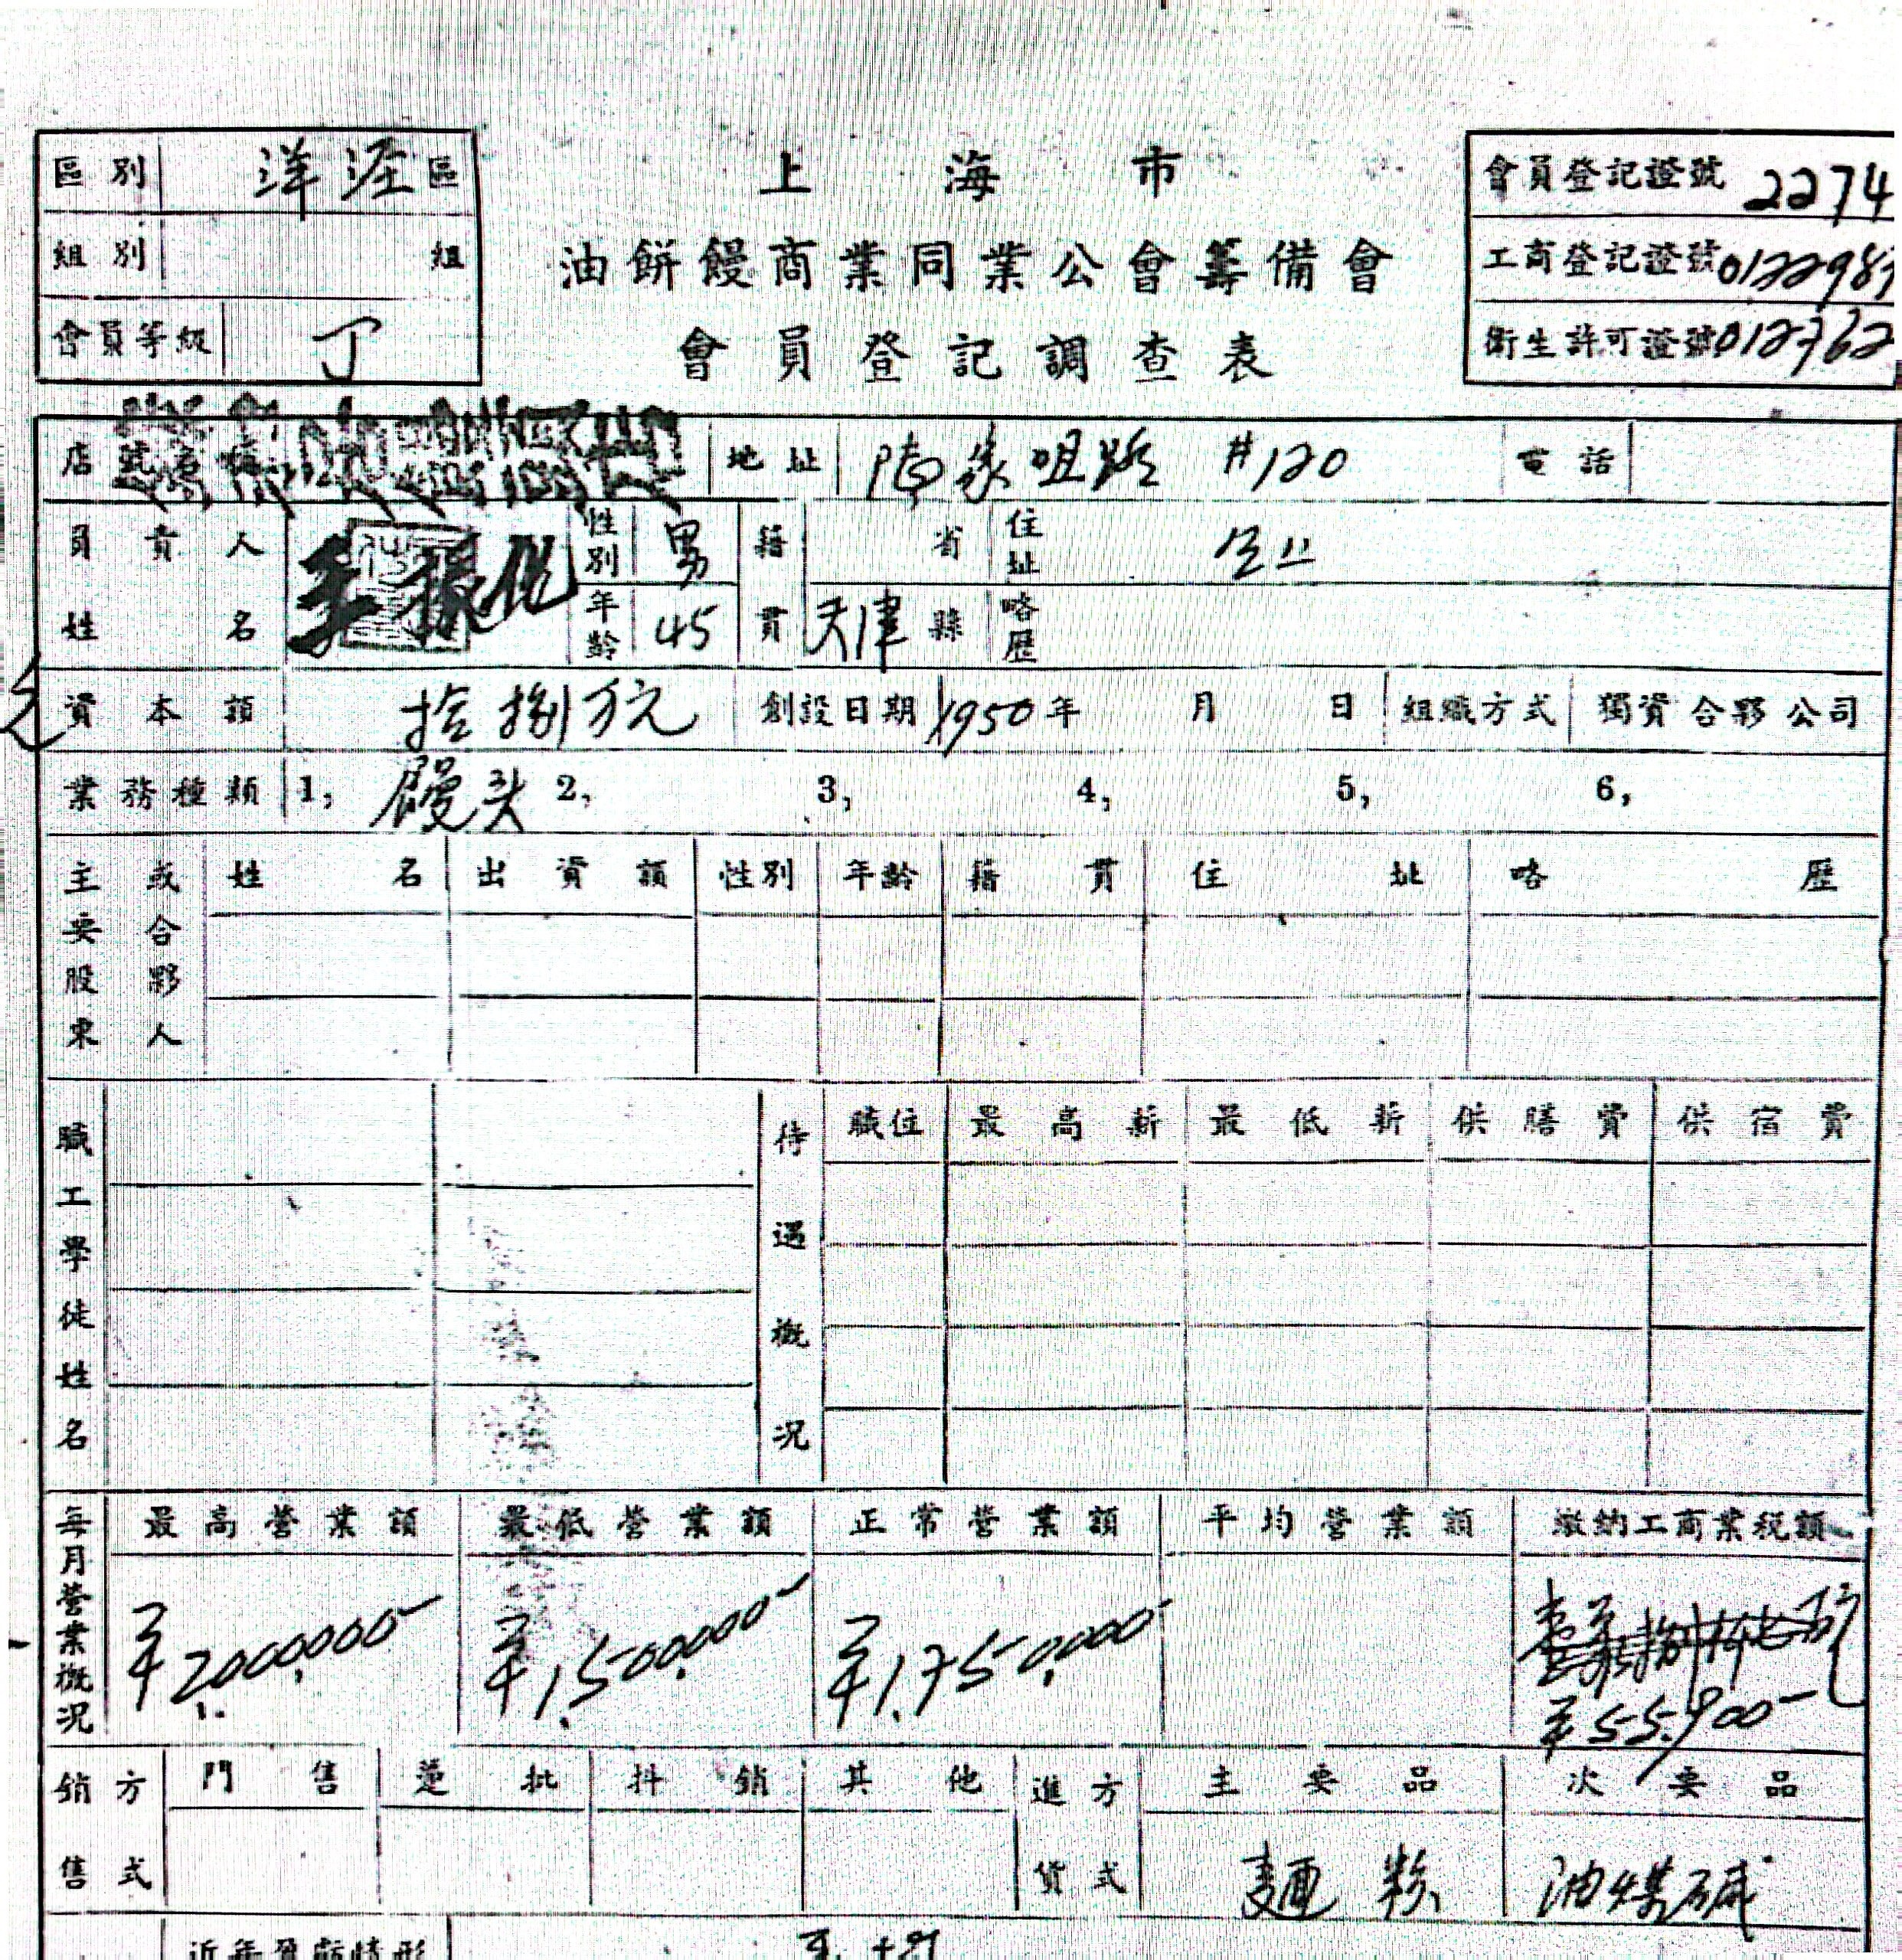 區別 洋泾區
組別 組
會員等級 丁
上海市
油餅饅商業同業公會籌備會
會員登記調查表
會員登記證號 2274
工商登記證號 012298
衛生許可證號 012762
店 地址 陆家咀路 #120 電話
負責人姓名 王振化 性別 男 年齡 45 籍貫 省 天津縣 住址 仝上 略歷
資本額 拾捌万元 創設日期 1950年 月 日 組織方式 獨資 合夥 公司
業務種類 1, 饅头 2, 3, 4, 5, 6,
主要股東或合夥人 姓名 出資額 性別 年齡 籍貫 住址 略歷
職工學徒姓名 待遇概況 職位 最高薪 最低薪 供膳費 供宿費
每月營業概況 最高營業額 最低營業額 正常營業額 平均營業額 繳納工商業税額
¥2,000,000- ¥1,500,000- ¥1,750,000- ¥55,900-
銷售方式 門售 躉批 抖銷 其他 進貨方式 主要品 次要品
麵粉 油煤碱
近年盈虧情形